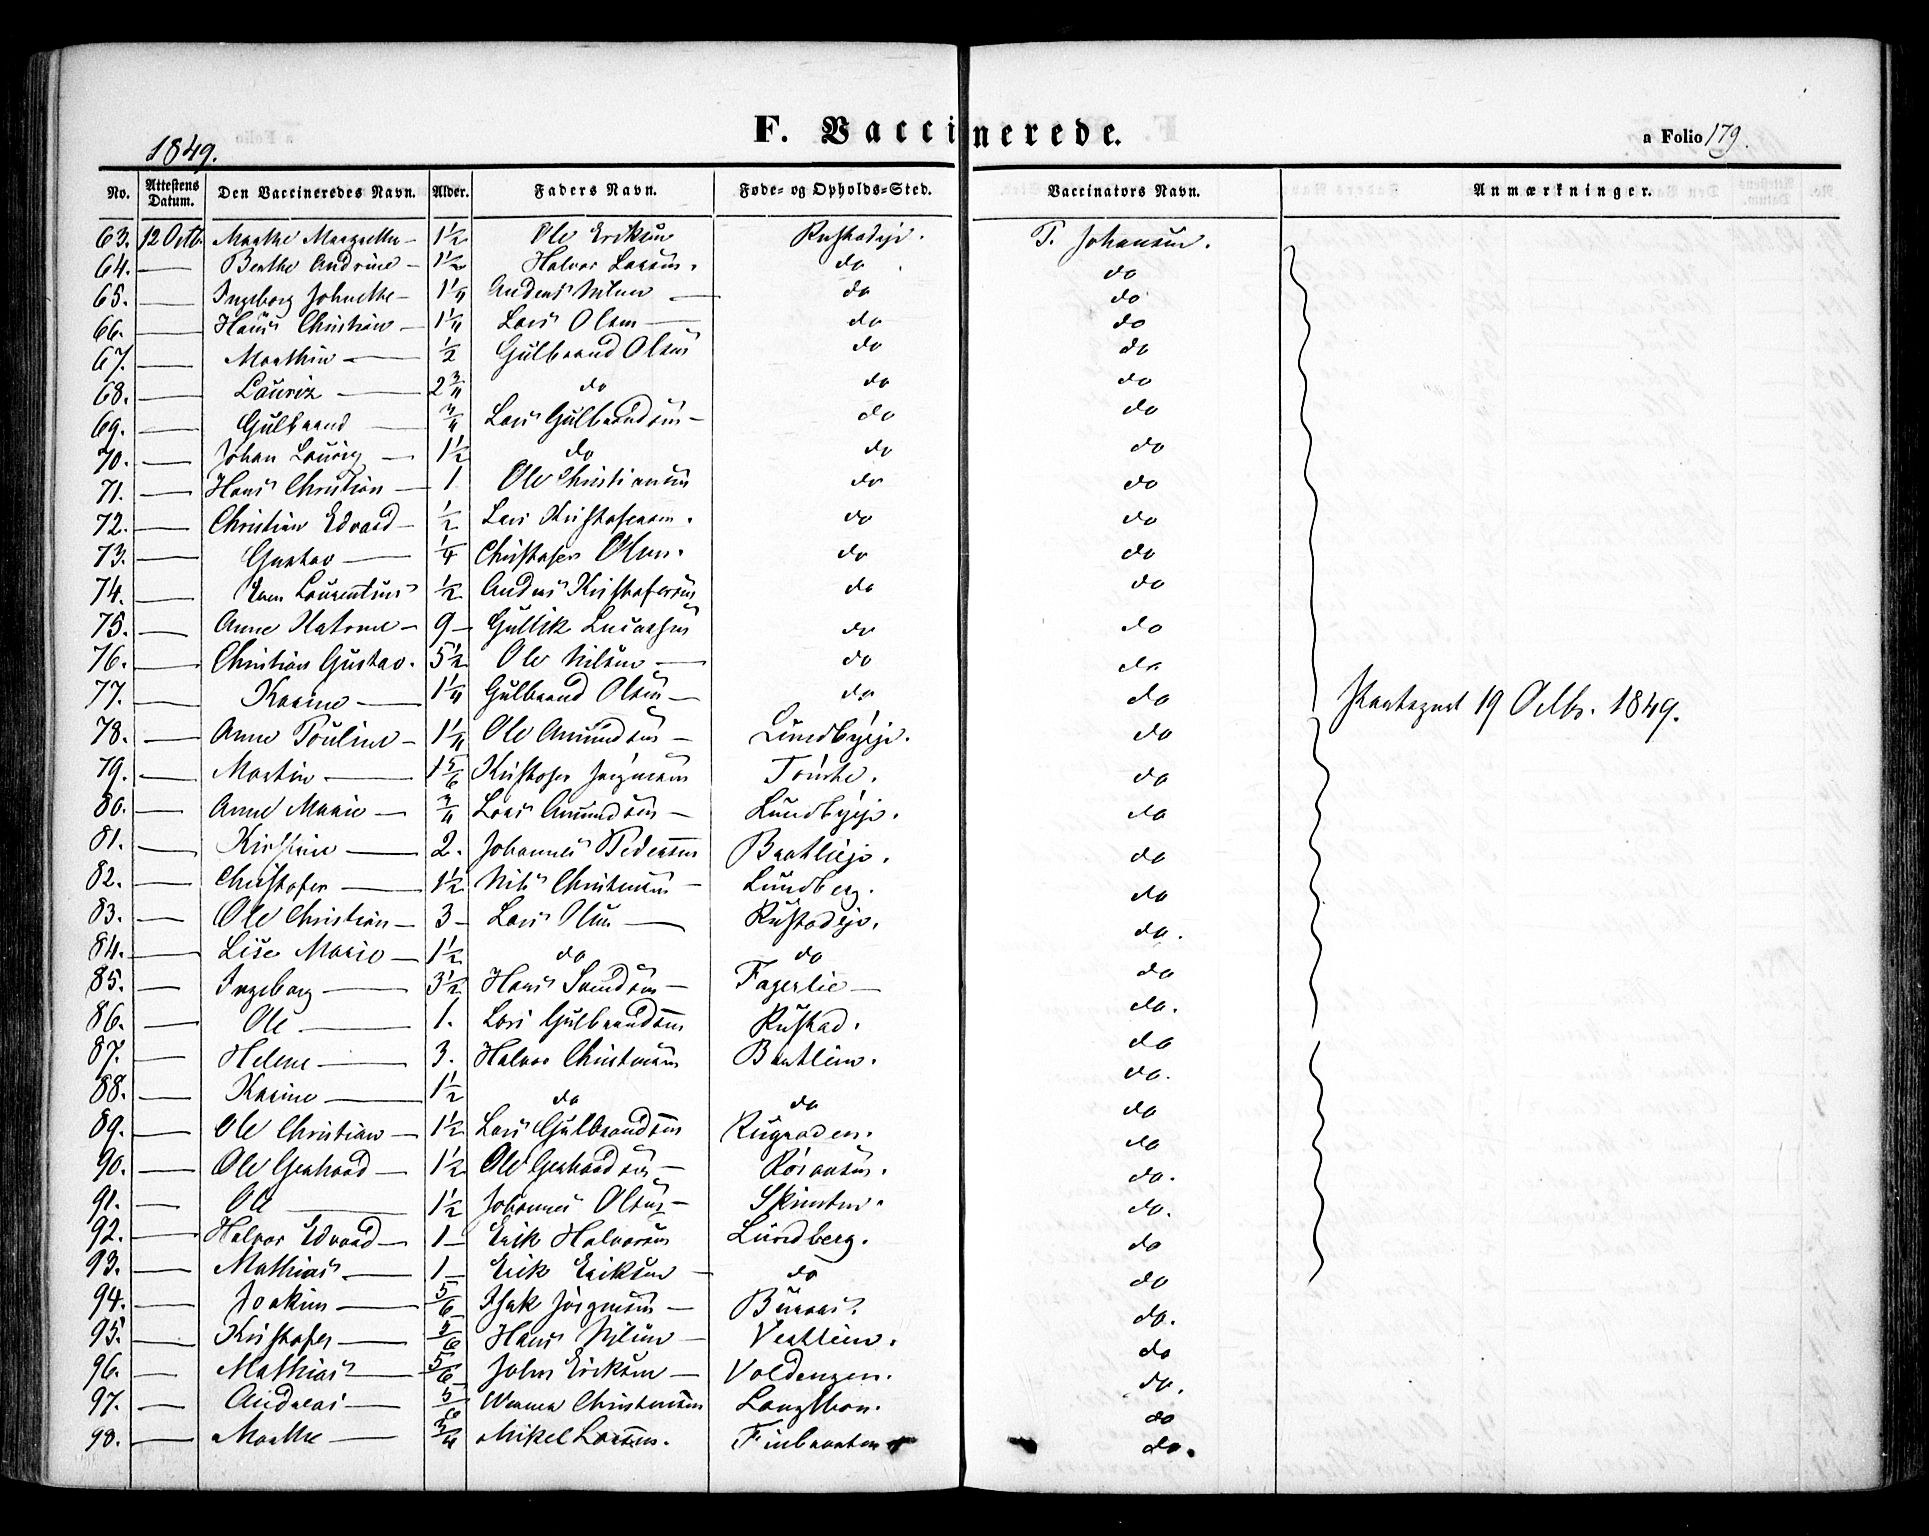 1849.
F. Vaccinerede.
a Folio 179.
No. Attestens Datum. Den Vaccineredes Navn. Alder. Faders Navn. Føde- og Opholds-Sted. Vaccinators Navn. Anmærkninger.
63. 12 Octb. Marthe Margrethe 1½ Ole Eriksen Rustadeje. P. Johansen.
64. — Berthe Andrine 1½ Halvor Larsen. do do
65. — Ingeborg Johnette 1¼ Anders Nilsen do do
66. — Hans Christian 1¼ Lars Olsen do do
67. — Marthin ½ Gulbrand Olsen do do
68. — Lauriz 2¾ do do do
69. — Gulbrand ¾ Lars Gulbrandsen do do
70. — Johan Lauriz 1½ do do do
71. — Hans Christian 1 Ole Christiansen do do
72. — Christian Edvard ½ Lars Kristofersen. do do
73. — Gustav ¼ Christofer Olsen. do do
74. — Even Laurentius ½ Anders Kristofersen do do
75. — Anne Katrine 9 Gullik do do
76. — Christian Gustav. 5½ Ole Nilsen do do
77. — Karine 1¼ Gulbrand Olsen do do 19 Octbr. 1849.
78. — Anne Pouline 1¼ Ole Amundsen Lundbyeje. do
79. — Martin 1 5/6 Kristofer Jørgensen do
80. — Anne Marie ¾ Lars Amundsen Lundbyeje. do
81. — Kirstine 2. Johannes Pedersen Bratlieje. do
82. — Christofer 1½ Nils Christensen Lundberg. do
83. — Ole Christian 3 Lars Olsen Rustadeje. do.
84. — Lise Marie 1½ do do do
85. — Ingeborg 3½ Hans Svendsen Fagerlie do.
86. — Ole 1. Lars Gulbrandsen Rustad. do
87. — Helene 3. Halvor Christensen Bratlien. do.
88. — Karine 1½ do do do
89. — Ole Christian 1½ Lars Gulbrandsen Rugraden. do
90. — Ole Gerhard 1½ Ole Gerhardsen do.
91. — Ole 1½ Johannes Olsen do.
92. — Halvor Edvard 1 Erik Halvorsen Lundberg. do
93. — Mathias 1 Erik Eriksen do do
94. — Joakim 5/6 Isak Jørgensen do.
95. — Kristofer 5/6 Hans Nilsen Vestlien. do
96. — Mathias 5/6 John Eriksen Voldengen. do.
97. — Andreas 5/6 Christensen do
98. — Marthe ¾ Mikel Larsen. Finbraaten do.